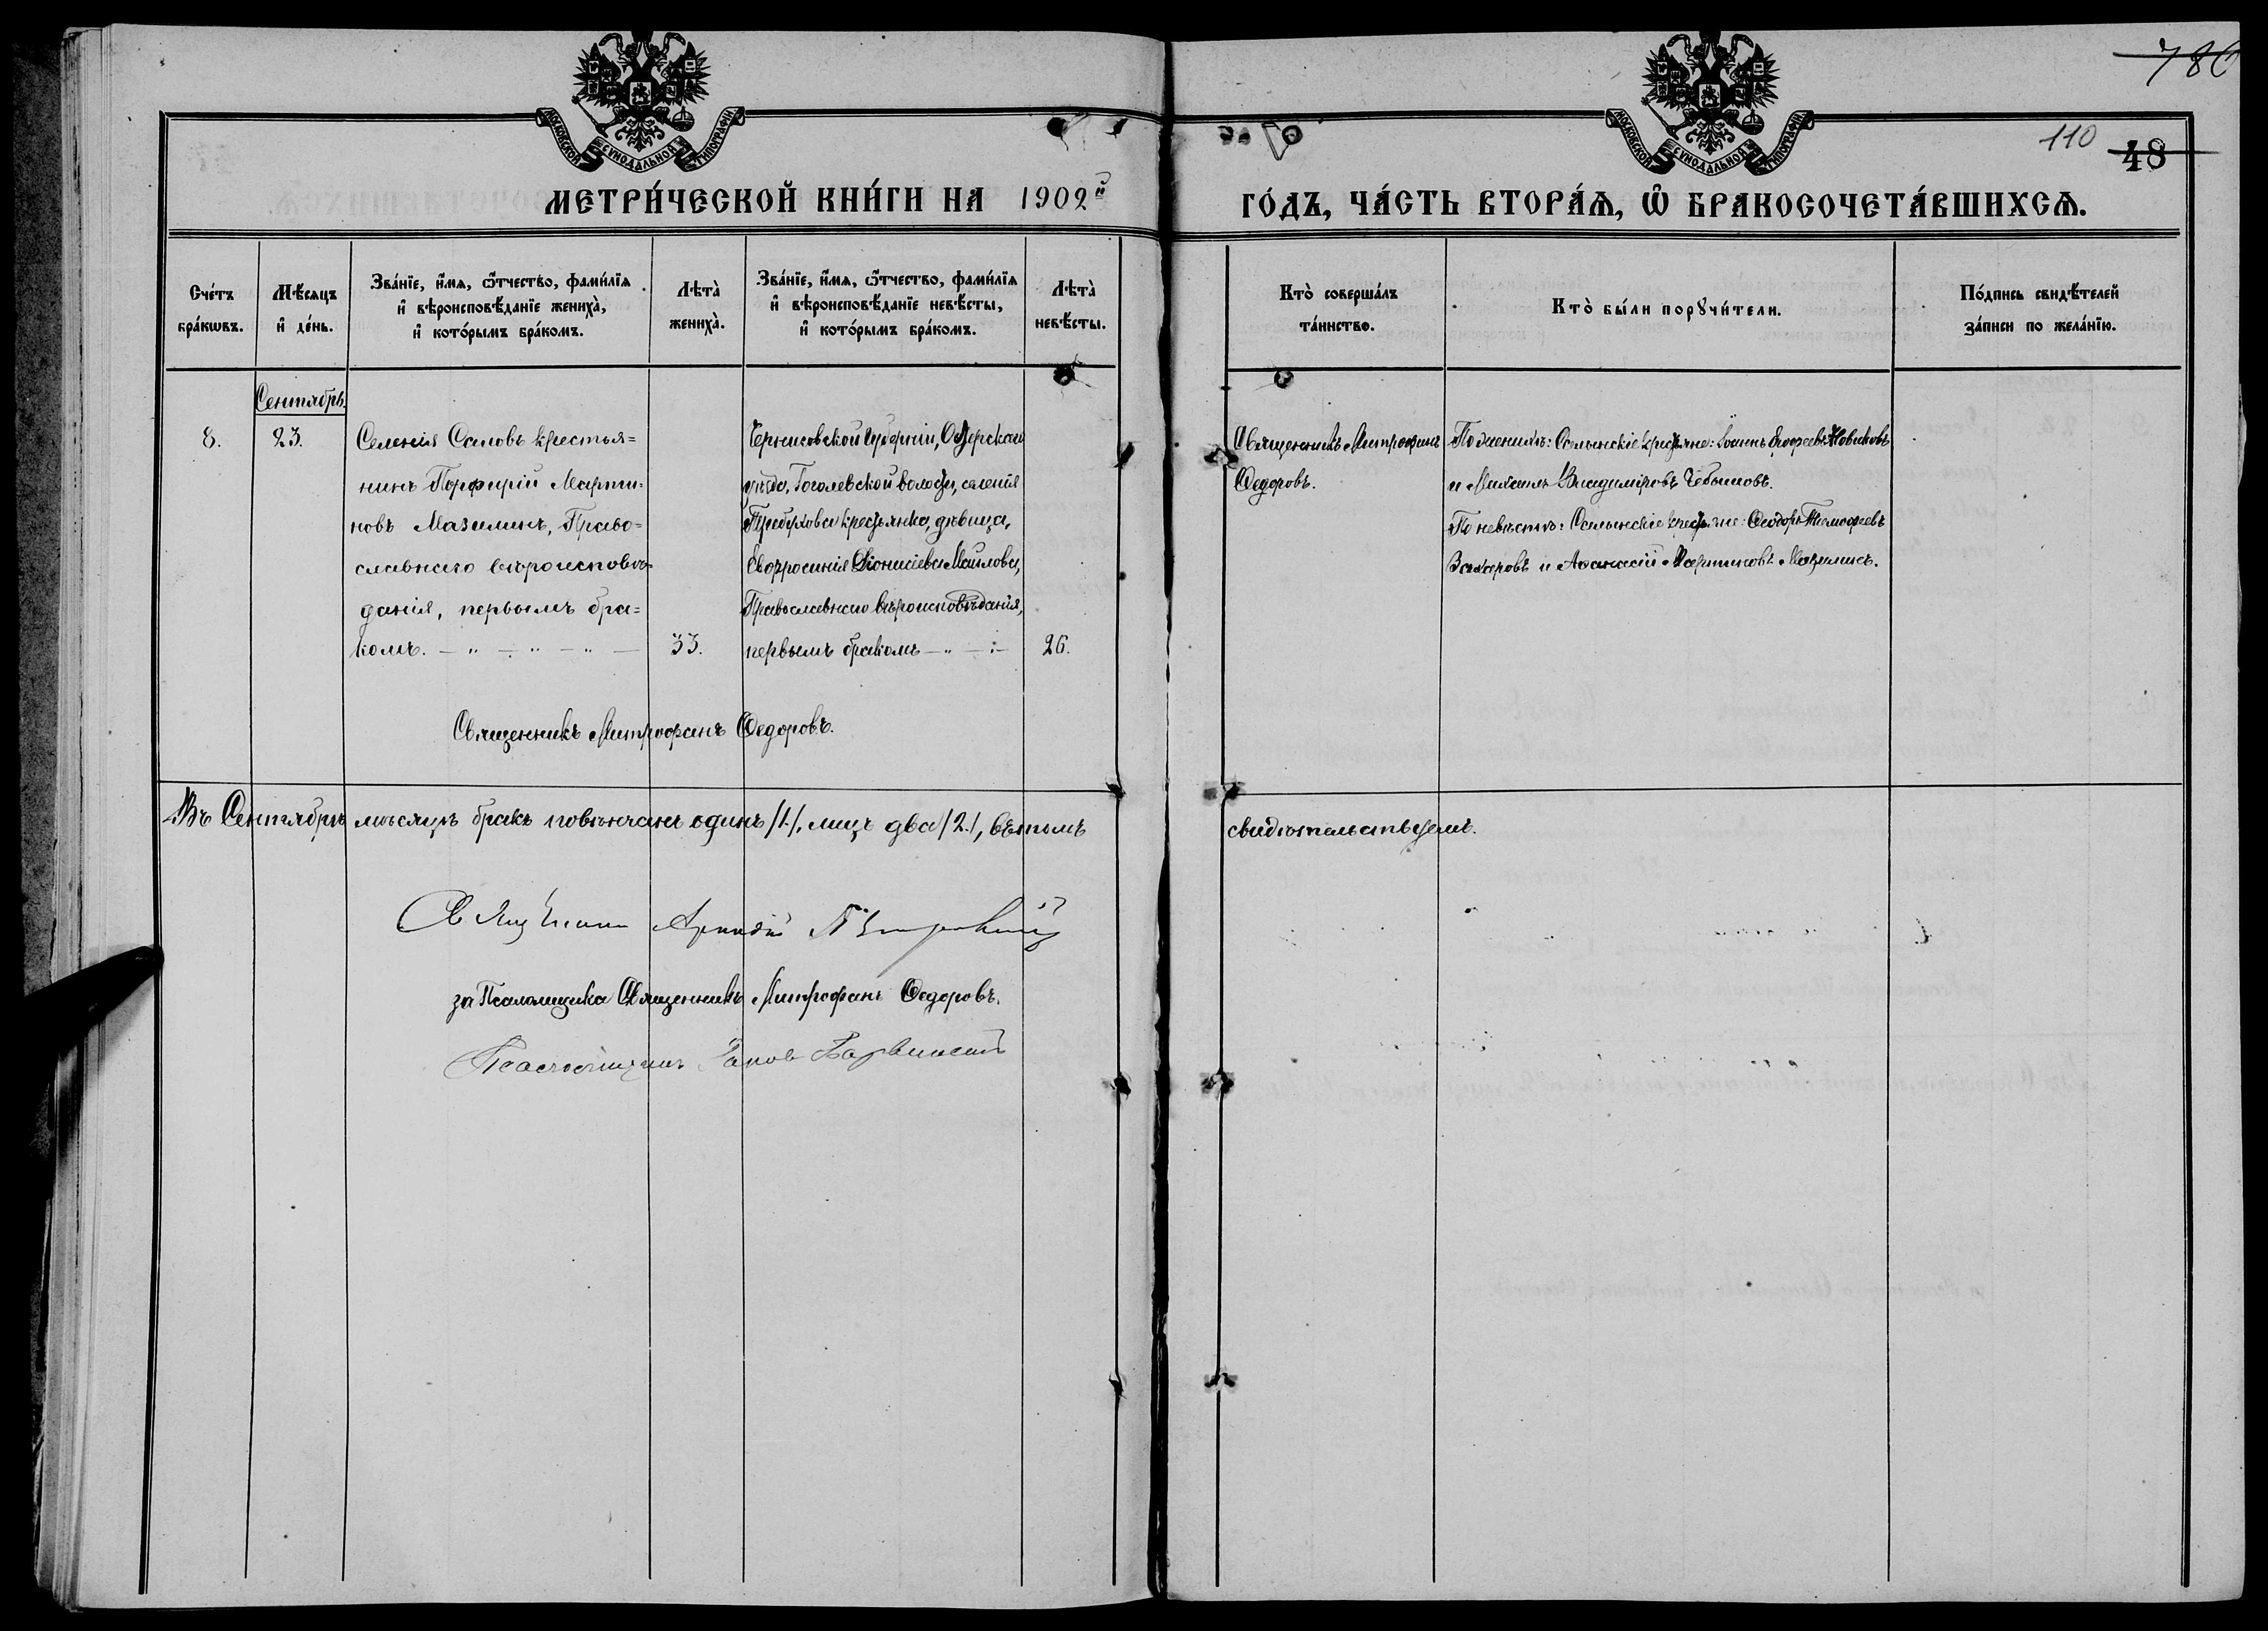 780
110 48
МОСКОВСКОЙ СУНОДАЛЬНОЙ ТИПОГРАФІИ
МОСКОВСКОЙ СУНОДАЛЬНОЙ ТИПОГРАФІИ
МЕТРИ́ЧЕСКОЙ КНИ́ГИ НА 1902й
ГО́ДЪ, ЧА́СТЬ ВТОРА́Ѧ, Ѽ БРАКОСОЧЕТА́ВШИХСѦ.
Сче́тъ
бра́кѡвъ.
Мѣ́сяцъ
и҆ де́нь.
Зва́нїе, и҆́мя, ѻ҆́тчество, фами́лїя
и҆ вѣроисповѣ́данїе жениха̀,
и҆ кото́рымъ бра́комъ.
Лѣта̀
жениха̀.
Зва́нїе, и҆́мя, ѻ҆́тчество, фами́лїя
и҆ вѣроисповѣ́данїе невѣ́сты,
и҆ кото́рымъ бра́комъ.
Лѣта̀
невѣ́сты.
Кто̀ соверша́лъ
та́инство.
Кто̀ бы́ли порꙋчи́тели.
По́дпись свидѣ́телей
за́писи по жела́нїю.
Сентябрь.
8.
23.
Селенія Самовъ крестья=
нинъ Порфирій Марти=
новъ Мазилинъ, Право=
славнаго вѣроисповѣ=
данія, первымъ бра=
комъ.
33.
Черниговской Губерніи, Остерскаго
уѣзда, Гоголевской волости, селенія
крестьянка, дѣвица,
Евфросинія Діонисіева Маилова,
Православнаго вѣроисповѣданія,
первымъ бракомъ
26.
Священникъ Митрофанъ
Ѳедоровъ.
По женихѣ: крестьяне: Іоаннъ Новиковъ
и Михаилъ Владиміровъ
По невѣстѣ: крестьяне: Ѳеодоръ Тимофеевъ
Захаровъ и Аѳанасій Мартиновъ Мазилинъ.
Священникъ Митрофанъ Ѳедоровъ.
Въ Сентябрѣ мѣсяцѣ бракъ повѣнчанъ одинъ /1/, лицъ два /2/, въ томъ
свидѣтельствуемъ.
Священникъ
за Псаломщика Священникъ Митрофанъ Ѳедоровъ.
Псаломщикъ